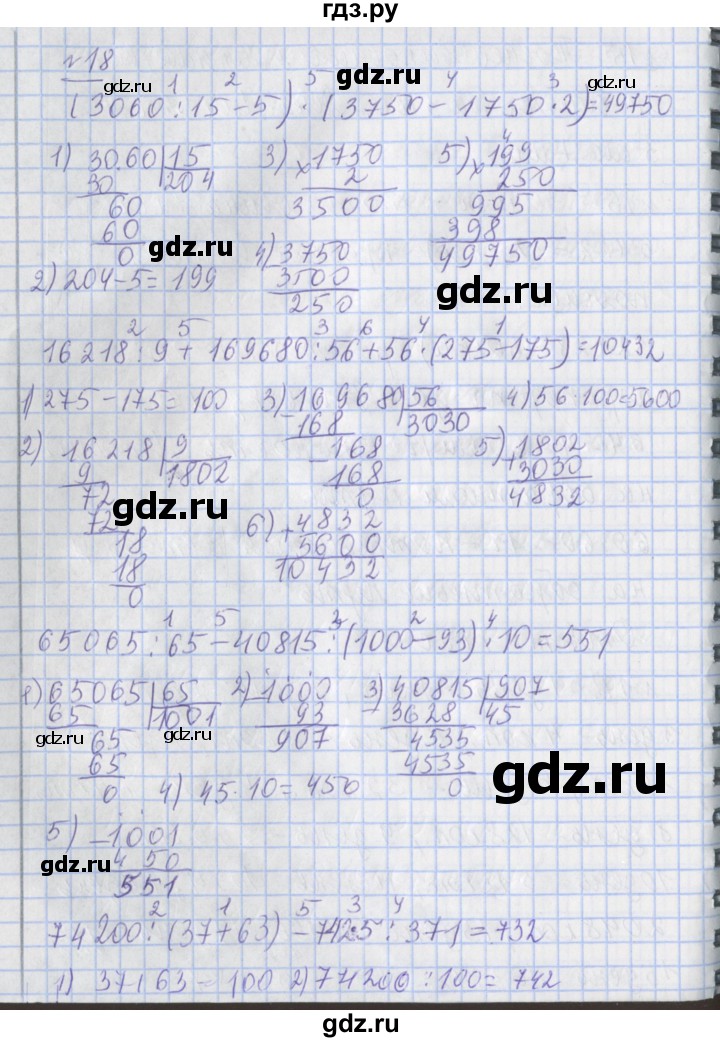 гдз.ру
№18
gdz.ru gdz.ru gdz.ru
1 2 5 4 3
(3060:15-5)·(3750-1750·2)=49750
1) 3060 15 3) ×1750 5) ×199
30 204 2 250
60 3500 995
60 398
0 gdz.ru 4) 3750 49750
2) 204-5=199 3500 gdz.ru
250
2 5 3 6 4 1
16218:9+169680:56+56·(275-175)=10432
1) 275-175=100 3) 169680 56 4) 56·100=5600
168 3030
2) 16218 9 168 5) +1802
9 1802 168 3030
72 gdz.ru 0 gdz.ru 4832
72 6) +4832
18 5600
18 10432
0
1 5 3 2 4
65065:65-40815:(1000-93)·10=551
1) 65065 65 2) 1000 3) 40815 907
65 1001 93 3628 45
gdz.ru 65 gdz.ru 907 4535
65 4535
0 4) 45·10=450 0 gdz.ru
5) -1001
gdz.ru 450
551
2 1 5 3 4
74200:(37+63)-7425:371=732
1) 37+63=100 2) 74200:100=742
gdz.ru